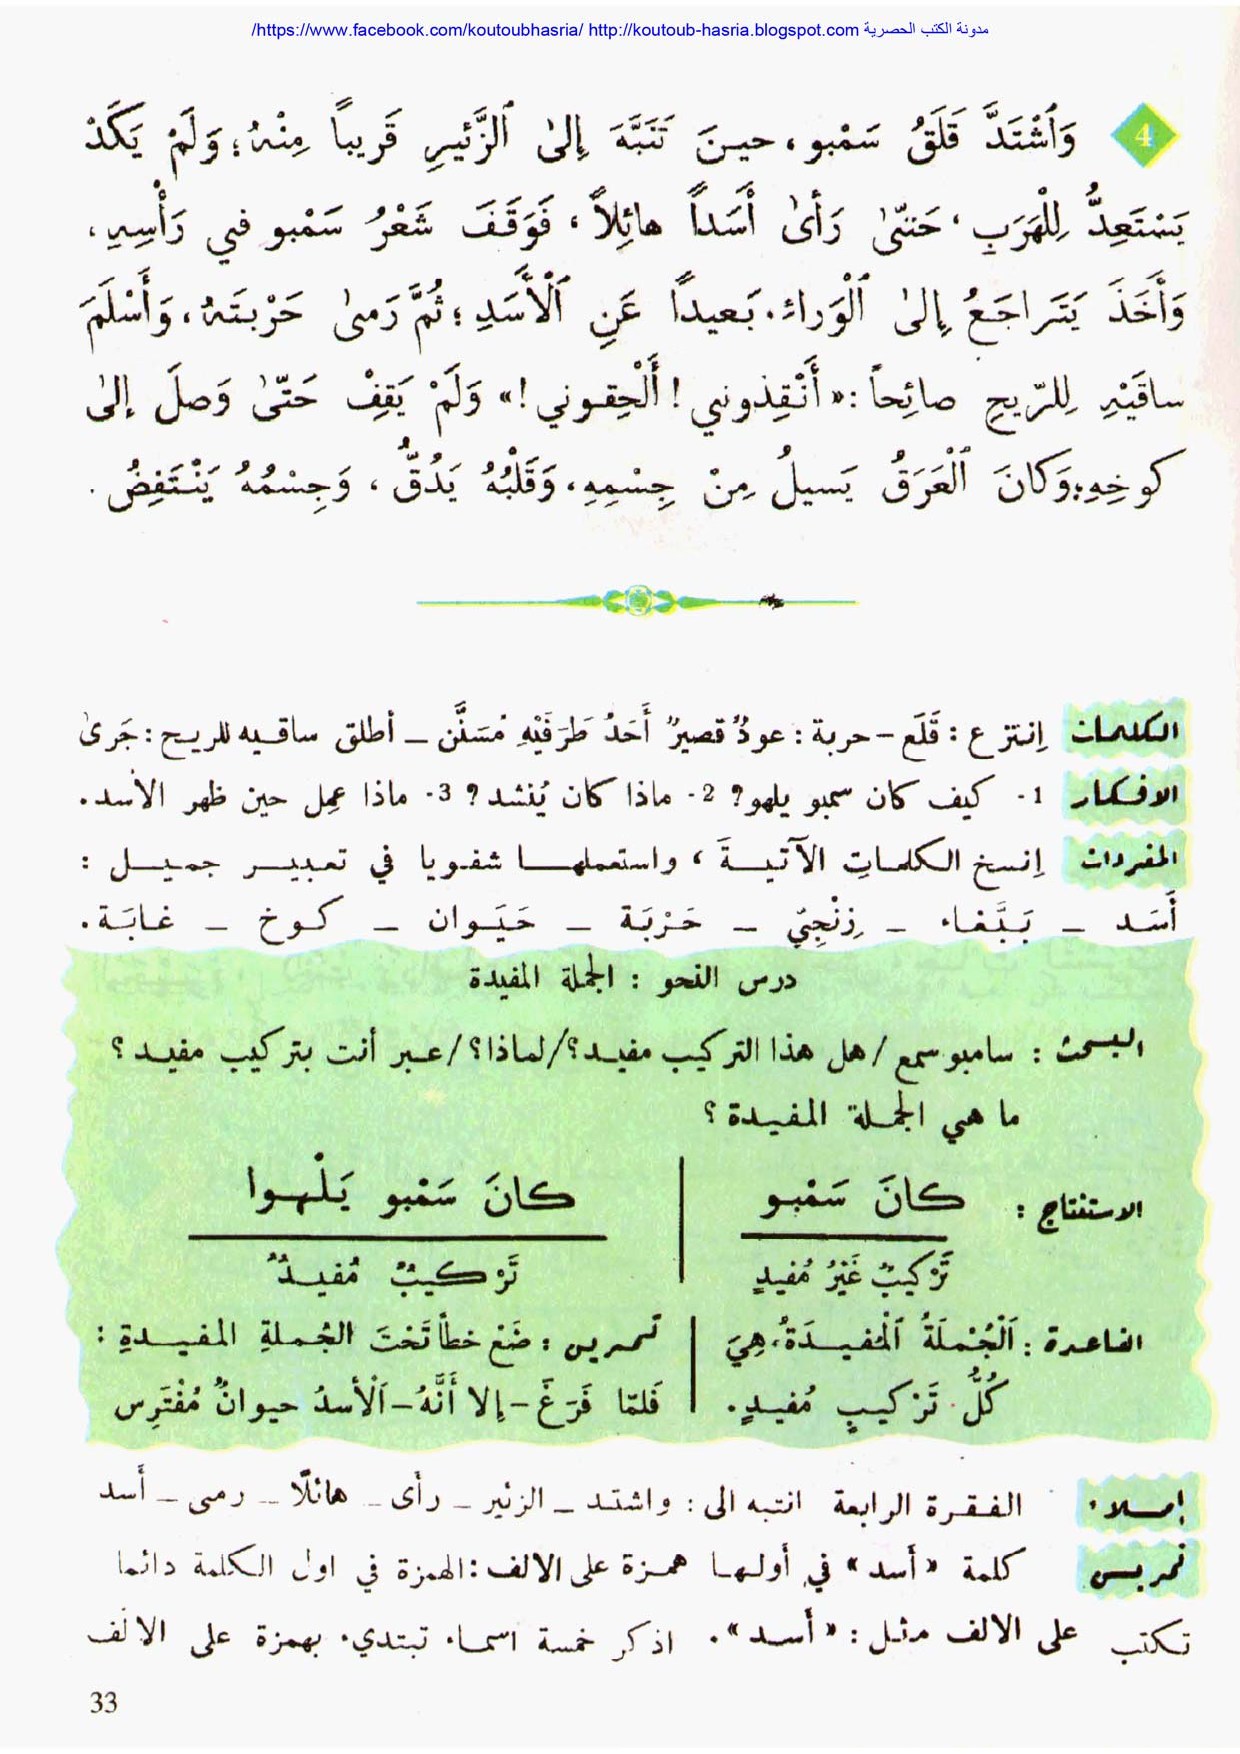 https://www.facebook.com/koutoubhasria/ http://koutoub-hasria.blogspot.com مدونة الكتب الحصرية/
4 وَاَشْتَدَّ قَلَقُ سَمْبو، حينَ تَنَبَّهَ إِلىٰ اَلزَّئيرِ قَريباً مِنْهُ؛ وَلَمْ يَكَدْ
يَسْتَعِدُّ لِلْهَرَبِ، حَتّىٰ رَأىٰ أَسَداً هائِلاً، فَوَقَفَ شَعْرُ سَمْبو في رَأْسِهِ،
وَأَخَذَ يَتَراجَعُ إِلىٰ اَلْوَراءِ. بَعيداً عَنِ اَلْأَسَدِ؛ ثُمَّ رَمىٰ حَرْبتَهُ، وَأَسْلَمَ
ساقَيْهِ لِلرّيحِ صائِحاً: «أَنْقِذوني! أَلْحِقوني!» وَلَمْ يَقِفْ حَتّىٰ وَصلَ إلىٰ
كوخِهِ؛ وَكانَ اَلْعَرَقُ يَسيلُ مِنْ جِسْمِهِ، وَقَلْبُهُ يَدُقُّ، وَجِسْمُهُ يَنْتَفِضُ.
الكلمات إنتزع: قَلَع - حربة: عودٌ قصيرٌ أَحَدُ طَرَفَيْهِ مُسَنَّن - أطلق ساقيه للريح: جَرىٰ
الافكار 1- كيف كان سمبو يلهو؟ 2- ماذا كان يُنشد؟ 3- ماذا عمِل حين ظهر الأسد.
المفردات إنسخ الكلماتِ الآتيةَ، واستعملها شفويا في تعبير جميل:
أَسَد - بَبَّغاء - زِنْجِيّ - حَرْبَة - حَيَوان - كوخ - غابَة.
درس النحو: الجملة المفيدة
البحث: سامبو سمع / هل هذا التركيب مفيد؟/ لماذا؟/ عبر أنت بتركيب مفيد؟
ما هي الجملة المفيدة؟
الاستنتاج: كانَ سَمْبو كانَ سَمْبو يَلْهوا
تَرْكيبٌ غَيْرُ مُفيدٍ تَرْكيبٌ مُفيدٌ
القاعدة: اَلْجُمْلَةُ اَلْمُفيدَةُ، هِيَ تمرين: ضَعْ خطاً تَحْتَ الجُملةِ المفيدةِ:
كُلُّ تَرْكيبٍ مُفيدٍ. فَلمّا فَرَغَ - إلا أَنَّهُ - اَلْأسدُ حيوانٌ مُفْتَرِس
إملاء الفقرة الرابعة انتبه الى: واشتد - الزئير - رأى - هائلًا - رمى - أسد
تمرين كلمة «أسد» في أولها همزة على الالف: الهمزة في اول الكلمة دائما
تكتب على الالف مثل: «أسد». اذكر خمسة اسماء تبتدىء بهمزة على الالف
33